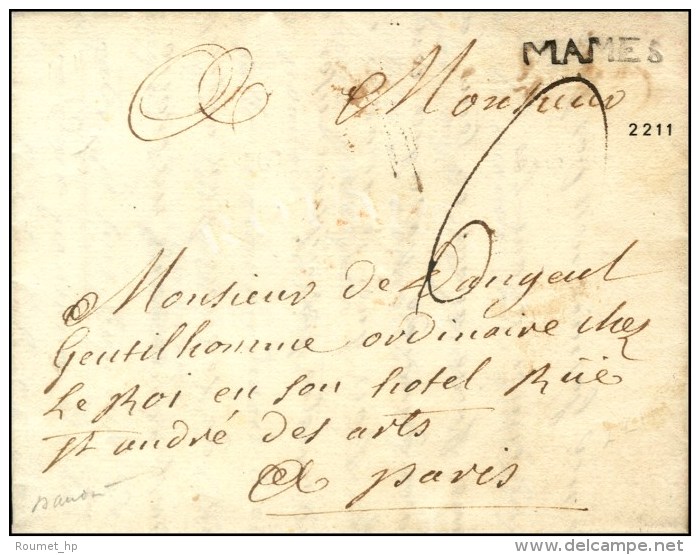 MAMES
A Monsieur
2211
6
Monsieur de Dangeul
Gentilhomme ordinaire chez
Le Roi en son hotel Rüe
St andré des arts
A paris
Roumet_hp
©DELCAMPE.NET